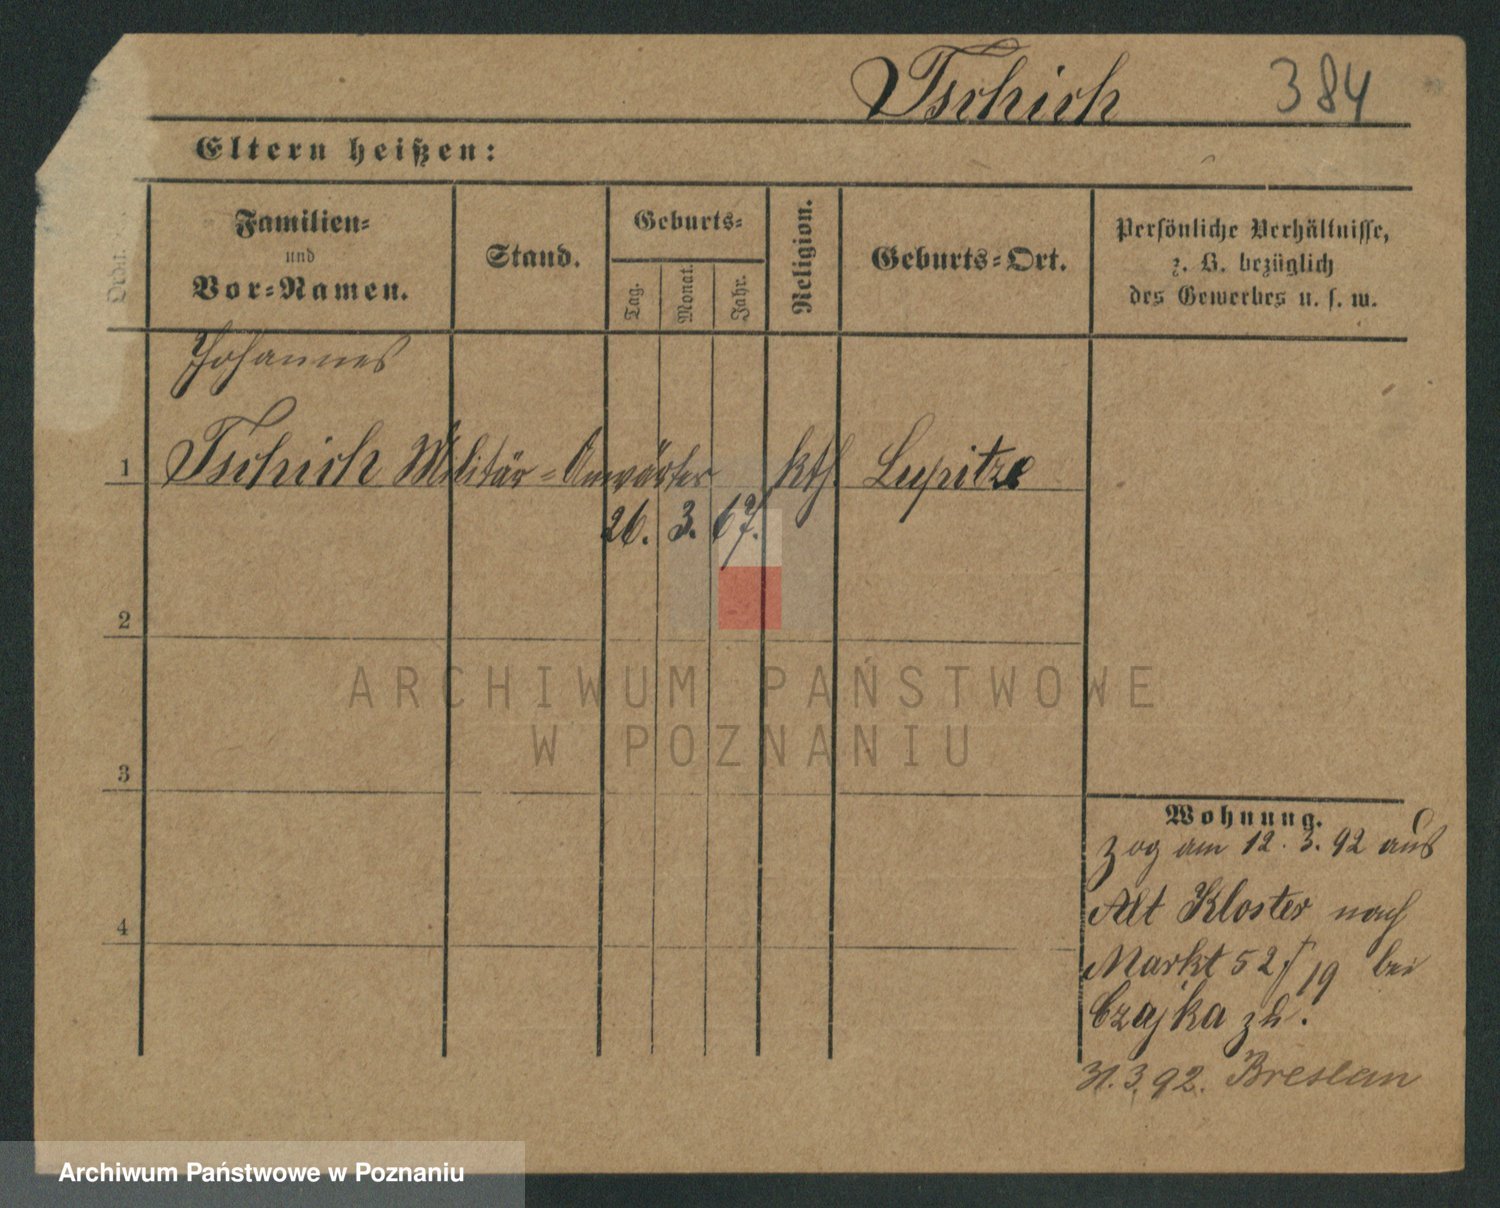 Tschich 384
Eltern heißen:
Familien-
und
Vor-Namen.
Stand.
Geburts-
Tag.
Monat.
Jahr.
Religion.
Geburts-Ort.
Persönliche Verhältnisse,
z. B. bezüglich
des Gewerbes u. s. w.
Johannes
1 Tschich Militär-Anwärter kth. Lupitze
26. 3. 67.
2
ARCHIWUM PAŃSTWOWE
W POZNANIU
3
Wohnung.
zog am 12.3.92 aus
4
Alt Kloster nach
Markt 52 / 19 bei
Czajka zu.
31.3.92. Breslau
Archiwum Państwowe w Poznaniu